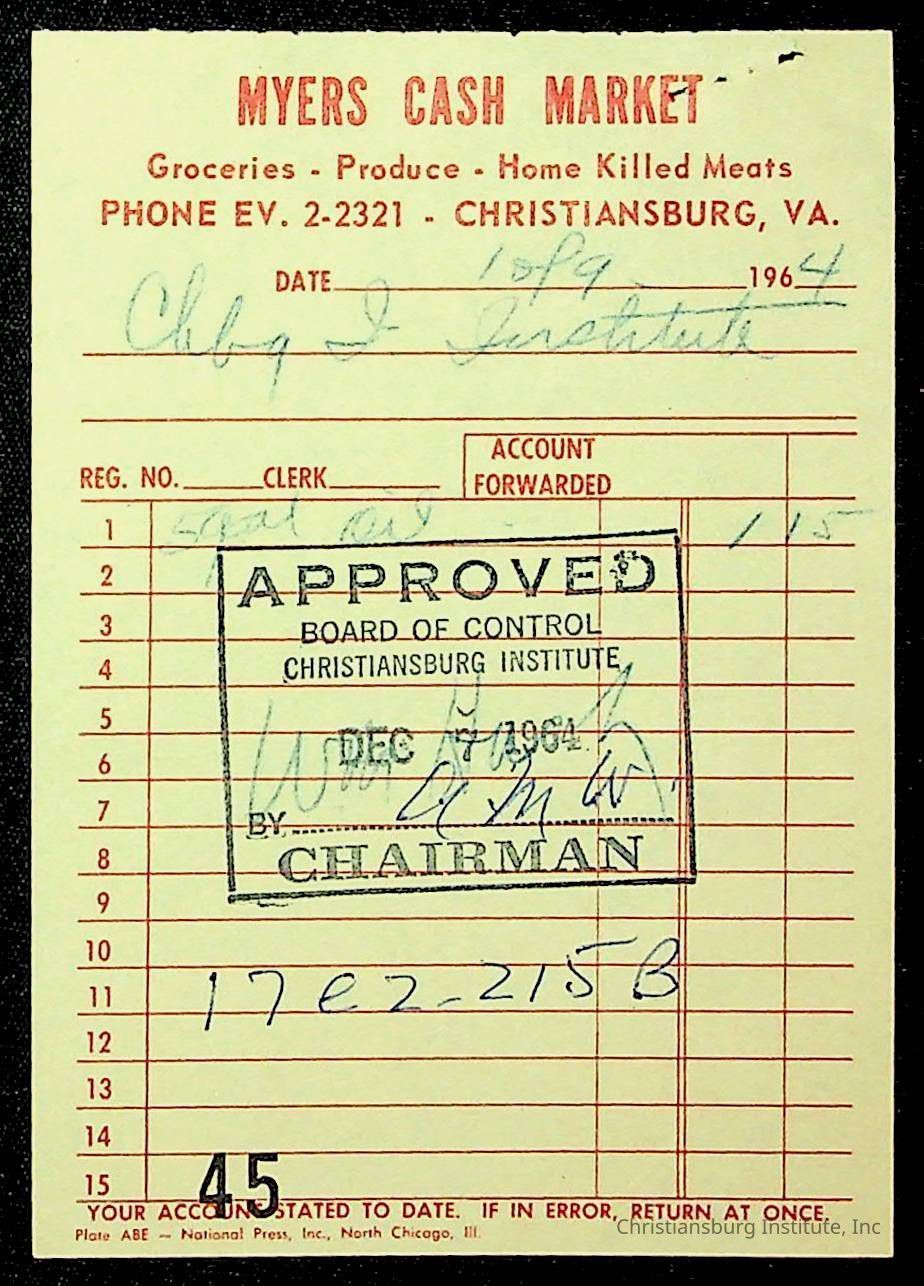 MYERS CASH MARKET
Groceries - Produce - Home Killed Meats
PHONE EV. 2-2321 - CHRISTIANSBURG, VA.
DATE 1964
Cbbg I Institute
ACCOUNT
REG. NO. CLERK FORWARDED
1 5 gal oil 1 15
2
APPROVED
3 BOARD OF CONTROL
4 CHRISTIANSBURG INSTITUTE
5
DEC 7 1964
6
7 BY
8 CHAIRMAN
9
10
11 17e2-215B
12
13
14
15
45
YOUR ACCOUNT STATED TO DATE. IF IN ERROR, RETURN AT ONCE.
Plate ABE — National Press, Inc., North Chicago, Ill.
Christiansburg Institute, Inc